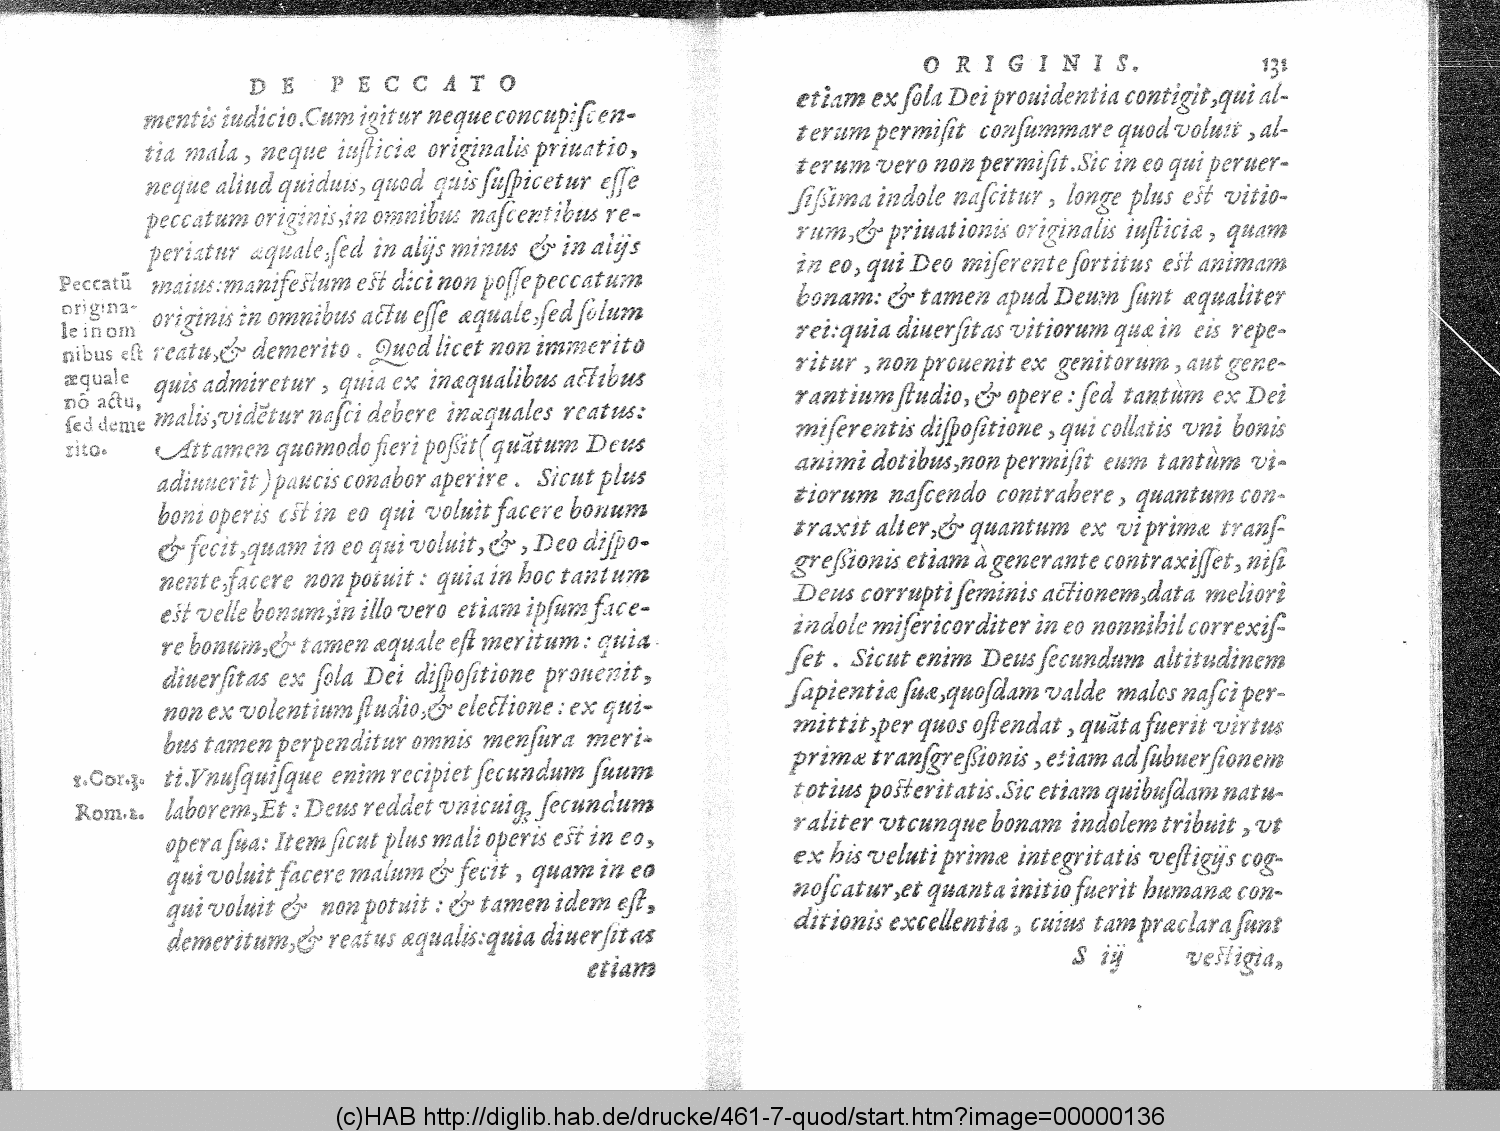 DE PECCATO
mentis iudicio.Cum igitur neque concupiſcen-
tia mala, neque iuſticiæ originalis priuatio,
neque aliud quiduis, quod quis ſuſpicetur eſſe
peccatum originis,in omnibus naſcentibus re-
periatur æquale,ſed in alijs minus & in alijs
maius:manifeſtum eſt dici non poſſe peccatum
originis in omnibus actu eſſe æquale,ſed ſolum
reatu,& demerito. Quod licet non immerito
quis admiretur, quia ex inæqualibus actibus
malis,vidētur naſci debere inæquales reatus:
Attamen quomodo fieri poſsit (quātum Deus
adiuuerit) paucis conabor aperire. Sicut plus
boni operis eſt in eo qui voluit facere bonum
& fecit,quam in eo qui voluit,&, Deo diſpo-
nente,facere non potuit: quia in hoc tantum
eſt velle bonum,in illo vero etiam ipſum face-
re bonum,& tamen æquale eſt meritum: quia
diuerſitas ex ſola Dei diſpoſitione prouenit,
non ex volentium ſtudio,& electione: ex qui-
bus tamen perpenditur omnis menſura meri-
ti.Vnuſquiſque enim recipiet ſecundum ſuum
laborem,Et: Deus reddet vnicuiq; ſecundum
opera ſua: Item ſicut plus mali operis eſt in eo,
qui voluit facere malum & fecit, quam in eo
qui voluit & non potuit: & tamen idem eſt,
demeritum,& reatus æqualis:quia diuerſitas
etiam
Peccatū
origina-
le in om
nibus eſt
æquale
nō actu,
ſed deme
rito.
1.Cor.3.
Rom.2.
ORIGINIS. 131
etiam ex ſola Dei prouidentia contigit,qui al-
terum permiſit conſummare quod voluit, al-
terum vero non permiſit.Sic in eo qui peruer-
ſiſsima indole naſcitur, longe plus eſt vitio-
rum,& priuationis originalis iuſticiæ, quam
in eo, qui Deo miſerente ſortitus eſt animam
bonam: & tamen apud Deum ſunt æqualiter
rei:quia diuerſitas vitiorum quæ in eis repe-
ritur, non prouenit ex genitorum, aut gene-
rantium ſtudio, & opere: ſed tantùm ex Dei
miſerentis diſpoſitione, qui collatis vni bonis
animi dotibus,non permiſit eum tantùm vi-
tiorum naſcendo contrahere, quantum con-
traxit alter,& quantum ex vi primæ tranſ-
greſsionis etiam à generante contraxiſſet, niſi
Deus corrupti ſeminis actionem,data meliori
indole miſericorditer in eo nonnihil correxiſ-
ſet. Sicut enim Deus ſecundum altitudinem
ſapientiæ ſuæ,quoſdam valde malos naſci per-
mittit,per quos oſtendat, quāta fuerit virtus
primæ tranſgreſsionis, etiam ad ſubuerſionem
totius poſteritatis.Sic etiam quibuſdam natu-
raliter vtcunque bonam indolem tribuit, vt
ex his veluti primæ integritatis veſtigijs cog-
noſcatur,et quanta initio fuerit humanæ con-
ditionis excellentia, cuius tam præclara ſunt
S iij veſtigia,
(c)HAB http://diglib.hab.de/drucke/461-7-quod/start.htm?image=00000136